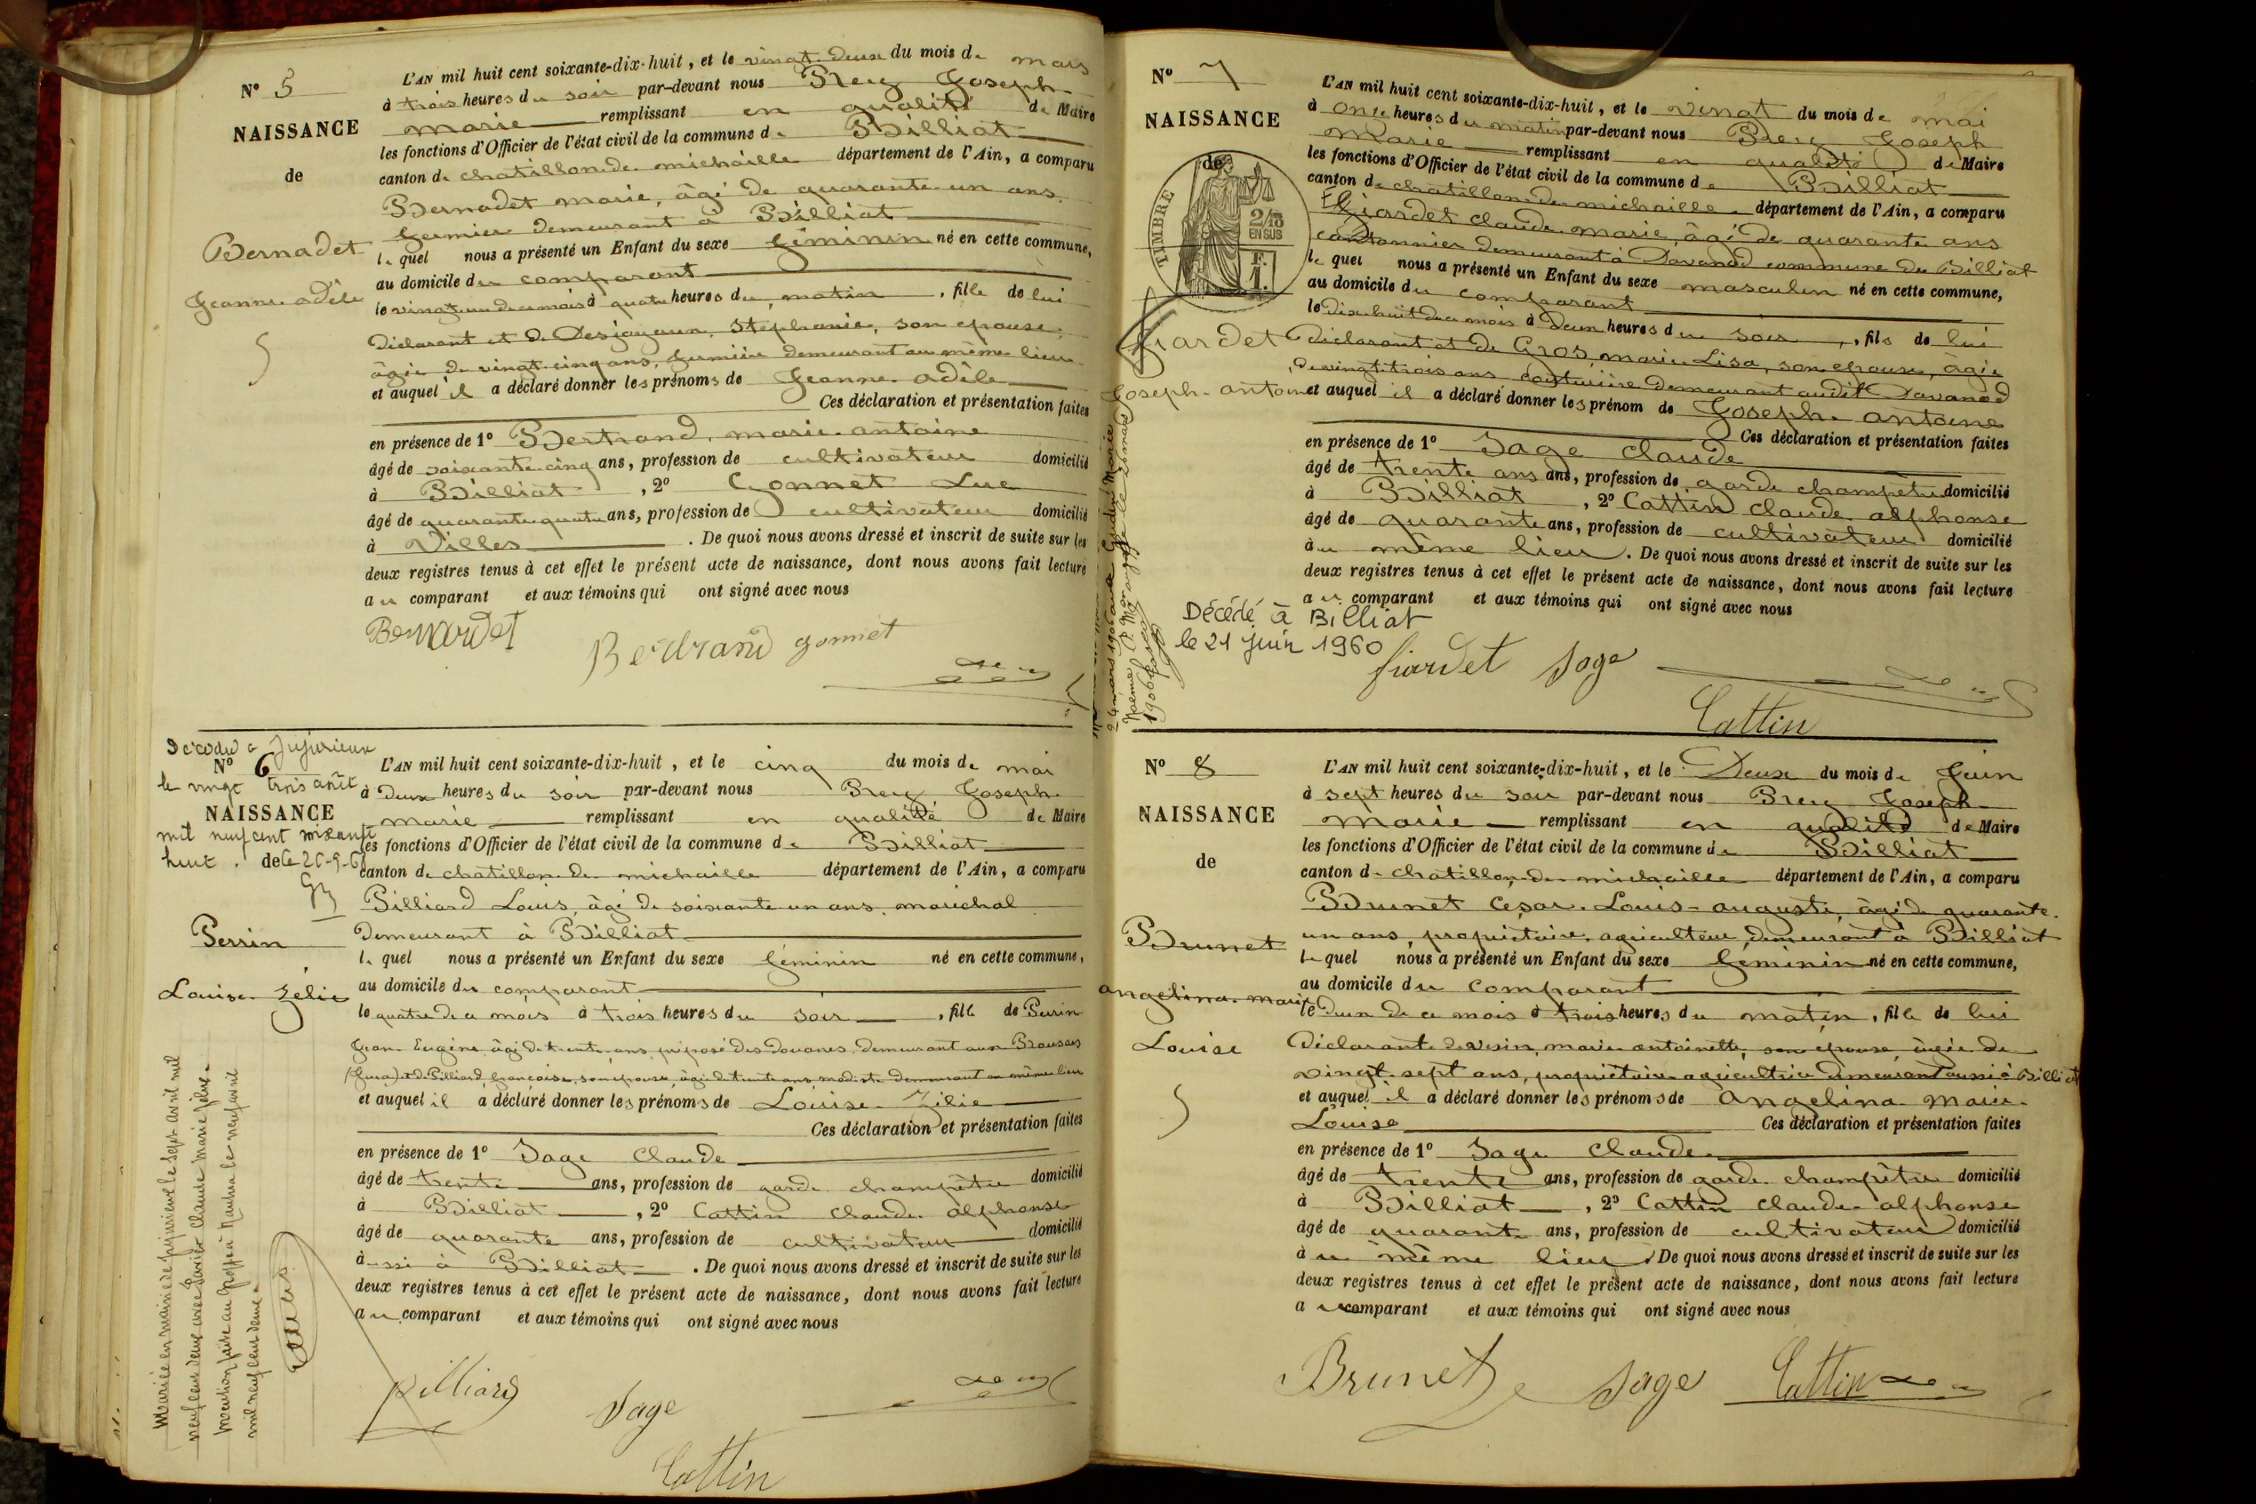 Nº 5
NAISSANCE
de
Bernadet
Jeanne adèle
L'AN mil huit cent soixante-dix-huit, et le vingt deux du mois de mars
à trois heures du soir par-devant nous Brey Joseph
marie remplissant en qualité de Maire
les fonctions d'Officier de l'état civil de la commune de Billiat
canton de chatillon de michaille département de l'Ain, a comparu
Bernadet marie, âgé de quarante un ans,
fermier demeurant à Billiat
lequel nous a présenté un Enfant du sexe féminin né en cette commune,
au domicile du comparant
le vingt un du mois à quatre heures du matin, fille de lui
déclarant et de Desjayaux, Stéphanie, son épouse,
âgée de vingt cinq ans, fermière demeurant au même lieu
et auquel il a déclaré donner les prénoms de Jeanne adèle
Ces déclaration et présentation faites
en présence de 1º Bertrand, marie antoine
âgé de soixante cinq ans, profession de cultivateur domicilié
à Billiat, 2º Gonnet Luc
âgé de quarante quatre ans, profession de cultivateur domicilié
à Villes. De quoi nous avons dressé et inscrit de suite sur les
deux registres tenus à cet effet le présent acte de naissance, dont nous avons fait lecture
au comparant et aux témoins qui ont signé avec nous
Bernardet
Bertrand gonnet
Décédée à Jujurieux
le vingt trois août
mil neuf cent soixante
huit. le 26-9-68
Nº 6
NAISSANCE
de
Perrin
Louise Zélie
Mariée en mairie de Jujurieux le sept avril mil
neuf cent deux avec Savier Claude Marie Félix.
Mention faite au Greffe à Nantua le neuf avril
mil neuf cent deux.
L'AN mil huit cent soixante-dix-huit, et le cinq du mois de mai
à deux heures du soir par-devant nous Brey Joseph
marie remplissant en qualité de Maire
les fonctions d'Officier de l'état civil de la commune de Billiat
canton de chatillon de michaille département de l'Ain, a comparu
Pilliard Louis, âgé de soixante un ans, maréchal
demeurant à Billiat
lequel nous a présenté un Enfant du sexe féminin né en cette commune,
au domicile du comparant
le quatre de ce mois à trois heures du soir, fille de Perrin
Jean Eugène âgé de trente ans, préposé des Douanes, demeurant aux Brousses
(Jura) et de Pilliard, françoise, son épouse, âgée de trente ans, modiste demeurant au même lieu
et auquel il a déclaré donner les prénoms de Louise Zélie
Ces déclaration et présentation faites
en présence de 1º Sage Claude
âgé de trente ans, profession de garde champêtre domicilié
à Billiat, 2º Cattin claude alphonse
âgé de quarante ans, profession de cultivateur domicilié
aussi à Billiat. De quoi nous avons dressé et inscrit de suite sur les
deux registres tenus à cet effet le présent acte de naissance, dont nous avons fait lecture
au comparant et aux témoins qui ont signé avec nous
Pilliard Sage
Cattin
Nº 7
NAISSANCE
de
TIMBRE
2/10
EN SUS
F.
1.
Fiardet
Joseph antoine
L'AN mil huit cent soixante-dix-huit, et le vingt du mois de mai
à onze heures du matin par-devant nous Brey Joseph
Marie remplissant en qualité de Maire
les fonctions d'Officier de l'état civil de la commune de Billiat
canton de chatillon de michaille département de l'Ain, a comparu
Fiardet claude marie, âgé de quarante ans
cantonnier demeurant à Davanod commune de Billiat
lequel nous a présenté un Enfant du sexe masculin né en cette commune,
au domicile du comparant
le dix huit de ce mois à deux heures du soir, fils de lui
déclarant et de Gros, marie Lisa, son épouse, âgée
de vingt trois ans couturière demeurant audit Davanod
et auquel il a déclaré donner les prénom de Joseph antoine
Ces déclaration et présentation faites
en présence de 1º Sage Claude
âgé de trente ans ans, profession de garde champêtre domicilié
à Billiat, 2º Cattin claude alphonse
âgé de quarante ans, profession de cultivateur domicilié
au même lieu. De quoi nous avons dressé et inscrit de suite sur les
deux registres tenus à cet effet le présent acte de naissance, dont nous avons fait lecture
au comparant et aux témoins qui ont signé avec nous
Décédé à Billiat
le 21 juin 1960
fiardet Sage
Cattin
Nº 8
NAISSANCE
de
Brunet
angelina marie
Louise
L'AN mil huit cent soixante-dix-huit, et le Deux du mois de Juin
à sept heures du soir par-devant nous Brey Joseph
marie remplissant en qualité de Maire
les fonctions d'Officier de l'état civil de la commune de Billiat
canton de chatillon de michaille département de l'Ain, a comparu
Brunet César Louis auguste, âgé de quarante
un ans, propriétaire agriculteur, demeurant à Billiat
lequel nous a présenté un Enfant du sexe féminin né en cette commune,
au domicile du comparant
le deux de ce mois à trois heures du matin, fille de lui
déclarant marie antoinette, son épouse, âgée de
vingt sept ans, propriétaire agricultrice demeurant aussi à Billiat
et auquel il a déclaré donner les prénoms de angelina marie
Louise Ces déclaration et présentation faites
en présence de 1º Sage Claude
âgé de trente ans, profession de garde champêtre domicilié
à Billiat, 2º Cattin claude alphonse
âgé de quarante ans, profession de cultivateur domicilié
au même lieu De quoi nous avons dressé et inscrit de suite sur les
deux registres tenus à cet effet le présent acte de naissance, dont nous avons fait lecture
au comparant et aux témoins qui ont signé avec nous
Brunet Sage Cattin